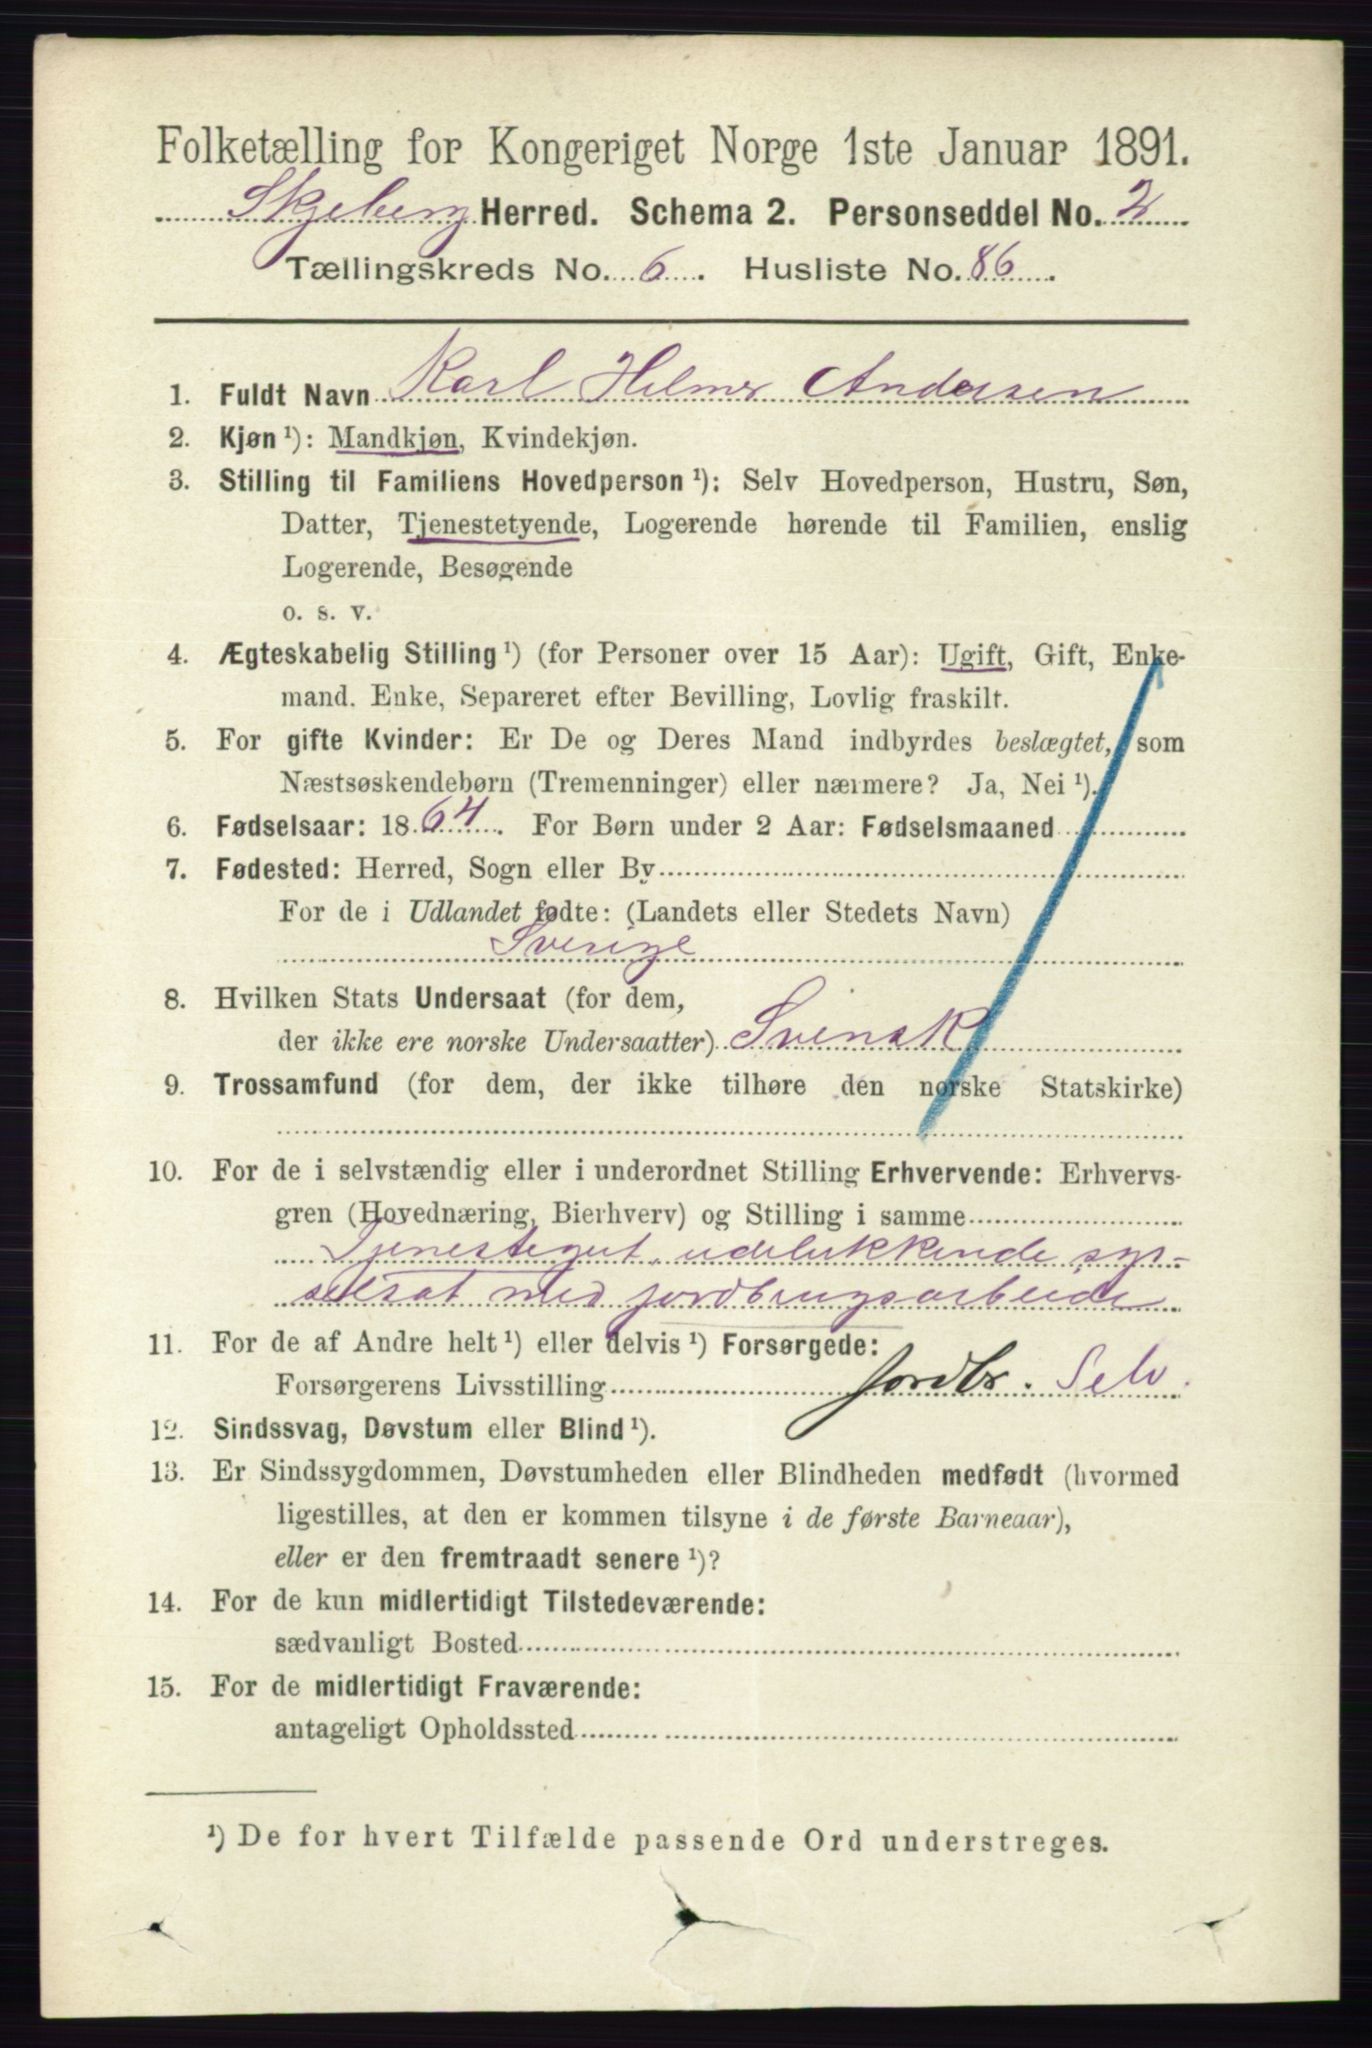 Folketælling for Kongeriget Norge 1ste Januar 1891.
Skjeberg Herred. Schema 2. Personseddel No. 2
Tællingskreds No. 6. Husliste No. 86.
1. Fuldt Navn Karl Helmer Andersen
2. Kjøn ¹): Mandkjøn, Kvindekjøn.
3. Stilling til Familiens Hovedperson ¹): Selv Hovedperson, Hustru, Søn,
Datter, Tjenestetyende, Logerende hørende til Familien, enslig
Logerende, Besøgende
o. s. v.
4. Ægteskabelig Stilling ¹) (for Personer over 15 Aar): Ugift, Gift, Enke-
mand. Enke, Separeret efter Bevilling, Lovlig fraskilt.
5. For gifte Kvinder: Er De og Deres Mand indbyrdes beslægtet, som
Næstsøskendebørn (Tremenninger) eller nærmere? Ja, Nei ¹).
6. Fødselsaar: 1864. For Børn under 2 Aar: Fødselsmaaned
7. Fødested: Herred, Sogn eller By
For de i Udlandet fødte: (Landets eller Stedets Navn)
Sverige
8. Hvilken Stats Undersaat (for dem,
der ikke ere norske Undersaatter) Svensk
9. Trossamfund (for dem, der ikke tilhøre den norske Statskirke)
10. For de i selvstændig eller i underordnet Stilling Erhvervende: Erhvervs-
gren (Hovednæring, Bierhverv) og Stilling i samme
Tjenestegut, udelukkende sys-
selsat med jordbrugsarbeide
11. For de af Andre helt ¹) eller delvis ¹) Forsørgede:
Forsørgerens Livsstilling jordbr. Selv.
12. Sindssvag, Døvstum eller Blind ¹).
13. Er Sindssygdommen, Døvstumheden eller Blindheden medfødt (hvormed
ligestilles, at den er kommen tilsyne i de første Barneaar),
eller er den fremtraadt senere ¹)?
14. For de kun midlertidigt Tilstedeværende:
sædvanligt Bosted
15. For de midlertidigt Fraværende:
antageligt Opholdssted
¹) De for hvert Tilfælde passende Ord understreges.